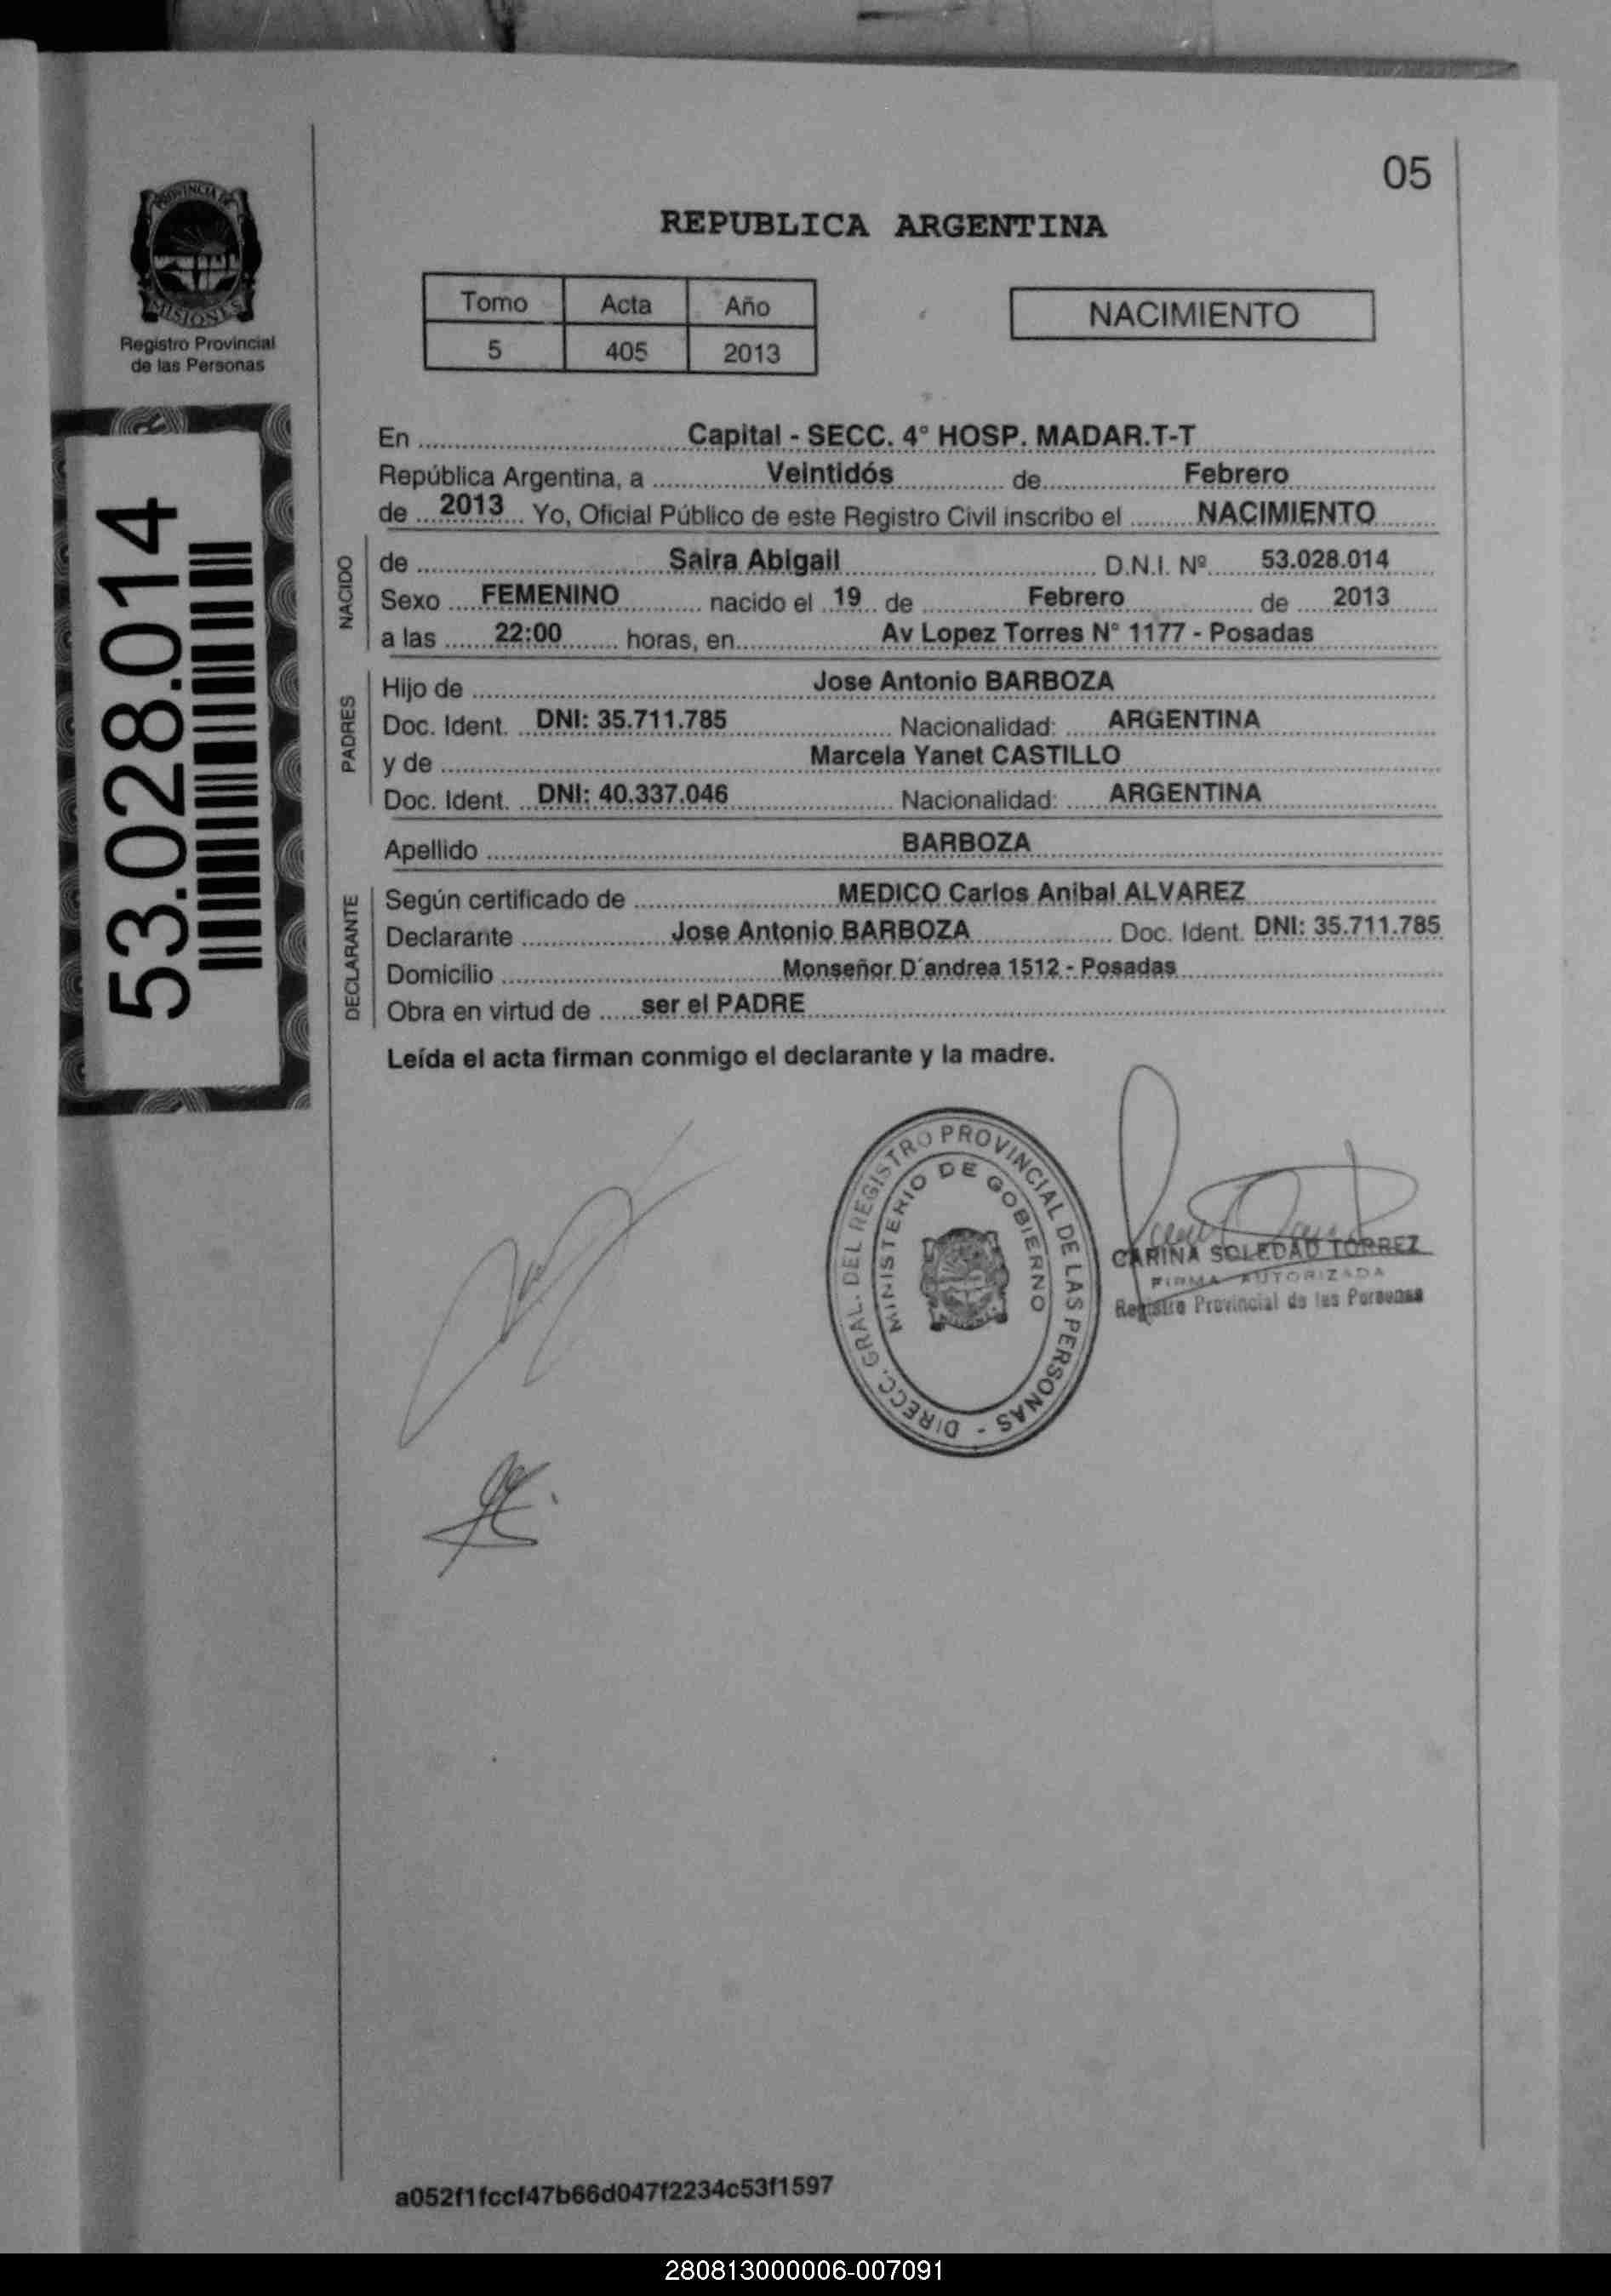 05
PROVINCIA DE
MISIONES
Registro Provincial
de las Personas
REPUBLICA ARGENTINA
Tomo Acta Año
5 405 2013
NACIMIENTO
53.028.014
En Capital - SECC. 4° HOSP. MADAR.T-T
República Argentina, a Veintidós de Febrero
de 2013 Yo, Oficial Público de este Registro Civil inscribo el NACIMIENTO
NACIDO
de Saira Abigail D.N.I. Nº 53.028.014
Sexo FEMENINO nacido el 19 de Febrero de 2013
a las 22:00 horas, en Av Lopez Torres N° 1177 - Posadas
PADRES
Hijo de Jose Antonio BARBOZA
Doc. Ident. DNI: 35.711.785 Nacionalidad: ARGENTINA
y de Marcela Yanet CASTILLO
Doc. Ident. DNI: 40.337.046 Nacionalidad: ARGENTINA
Apellido BARBOZA
DECLARANTE
Según certificado de MEDICO Carlos Anibal ALVAREZ
Declarante Jose Antonio BARBOZA Doc. Ident. DNI: 35.711.785
Domicilio Monseñor D´andrea 1512 - Posadas
Obra en virtud de ser el PADRE
Leída el acta firman conmigo el declarante y la madre.
DIRECC. GRAL. DEL REGISTRO PROVINCIAL DE LAS PERSONAS -
MINISTERIO DE GOBIERNO
CARINA SOLEDAD TORREZ
FIRMA AUTORIZADA
Registro Provincial de las Personas
a052f1fccf47b66d047f2234c53f1597
280813000006-007091